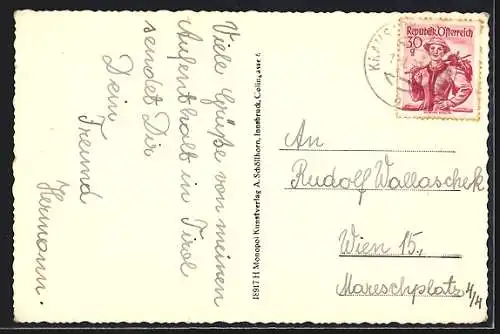 Viele Grüße von meinen
Aufenthalt in Tirol
sendet Dir
Dein
Freund
Hermann.
18917 H Monopol Kunstverlag A. Schöllhorn, Innsbruck, Colingasse 6
Republik Österreich
30 g
An
Rudolf Wallaschek
Wien 15.,
Mareschplatz 4/4